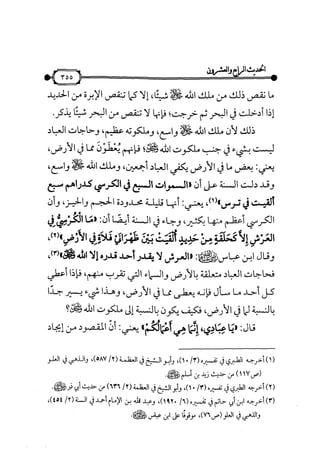 الحديث الرابع والعشرون
٣٥٥
ما نقص ذلك من ملك الله ﷺ شيئًا، إلا كما تنقص الإبرة من الحديد
إذا أدخلت في البحر ثم خرجت؛ فإنها لا تنقص من البحر شيئًا يذكر.
ذلك لأن ملك الله ﷻ واسع، وملكوته عظيم، وحاجات العباد
ليست بشيء في جنب ملكوت الله ﷻ؛ فإنهم يُعطَوْنَ مما في الأرض،
يعني: بعض ما في الأرض يكفي العباد أجمعين، وملك الله ﷻ واسع،
وقد دلت السنة على أن «السموات السبع في الكرسي كدراهم سبع
ألقيت في ترس»(١)، يعني: أنها قليلة محدودة الحجم والحيز، وأن
الكرسي أعظم منها بكثير، وجاء في السنة أيضًا أن: «مَا الْكُرْسِيُّ فِي
الْعَرْشِ إِلاَّ كَحَلْقَةٍ مِنْ حَدِيدٍ أُلْقِيَتْ بَيْنَ ظَهْرَانَيْ فَلاَةٍ فِي الأَرْضِ»(٢)،
وقال ابن عباس: «العرش لا يقدر أحد قدره إلا الله ﷻ»(٣)،
فحاجات العباد متعلقة بالأرض والسماء التي تقرب منهم، فإذا أعطي
كل أحد ما سأل فإنه يعطى مما في الأرض، وهذا شيء يسير جدًا
بالنسبة لما في الأرض، فكيف يكون بالنسبة إلى ملكوت الله ﷻ؟
قال: «يَا عِبَادِي، إِنَّمَا هِيَ أَعْمَالُكُمْ» يعني: أنَّ المقصود من إيجاد
(١) أخرجه الطبري في تفسيره (١٠/٣)، وأبو الشيخ في العظمة (٥٨٧/٢)، والذهبي في العلو
(ص١١٧) من حديث زيد بن أسلم
(٢) أخرجه الطبري في تفسيره (١٠/٣)، وأبو الشيخ في العظمة (٦٣٦/٢) من حديث أبي ذر
(٣) أخرجه ابن أبي حاتم في تفسيره (١٩٢٠/٦)، وعبد الله بن الإمام أحمد في السنة (٤٥٤/٢)،
والذهبي في العلو (ص٧٦)، موقوفًا على ابن عباس